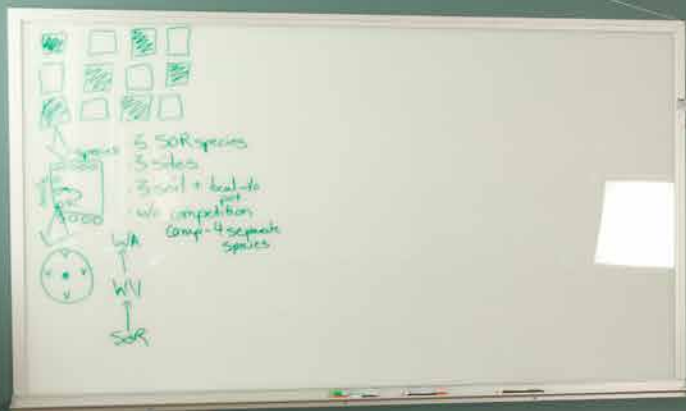 species
5 SOR species
3 sites
3 soil +
pot
w/o competition
comp - 4 separate
species
WA
WV
SOR